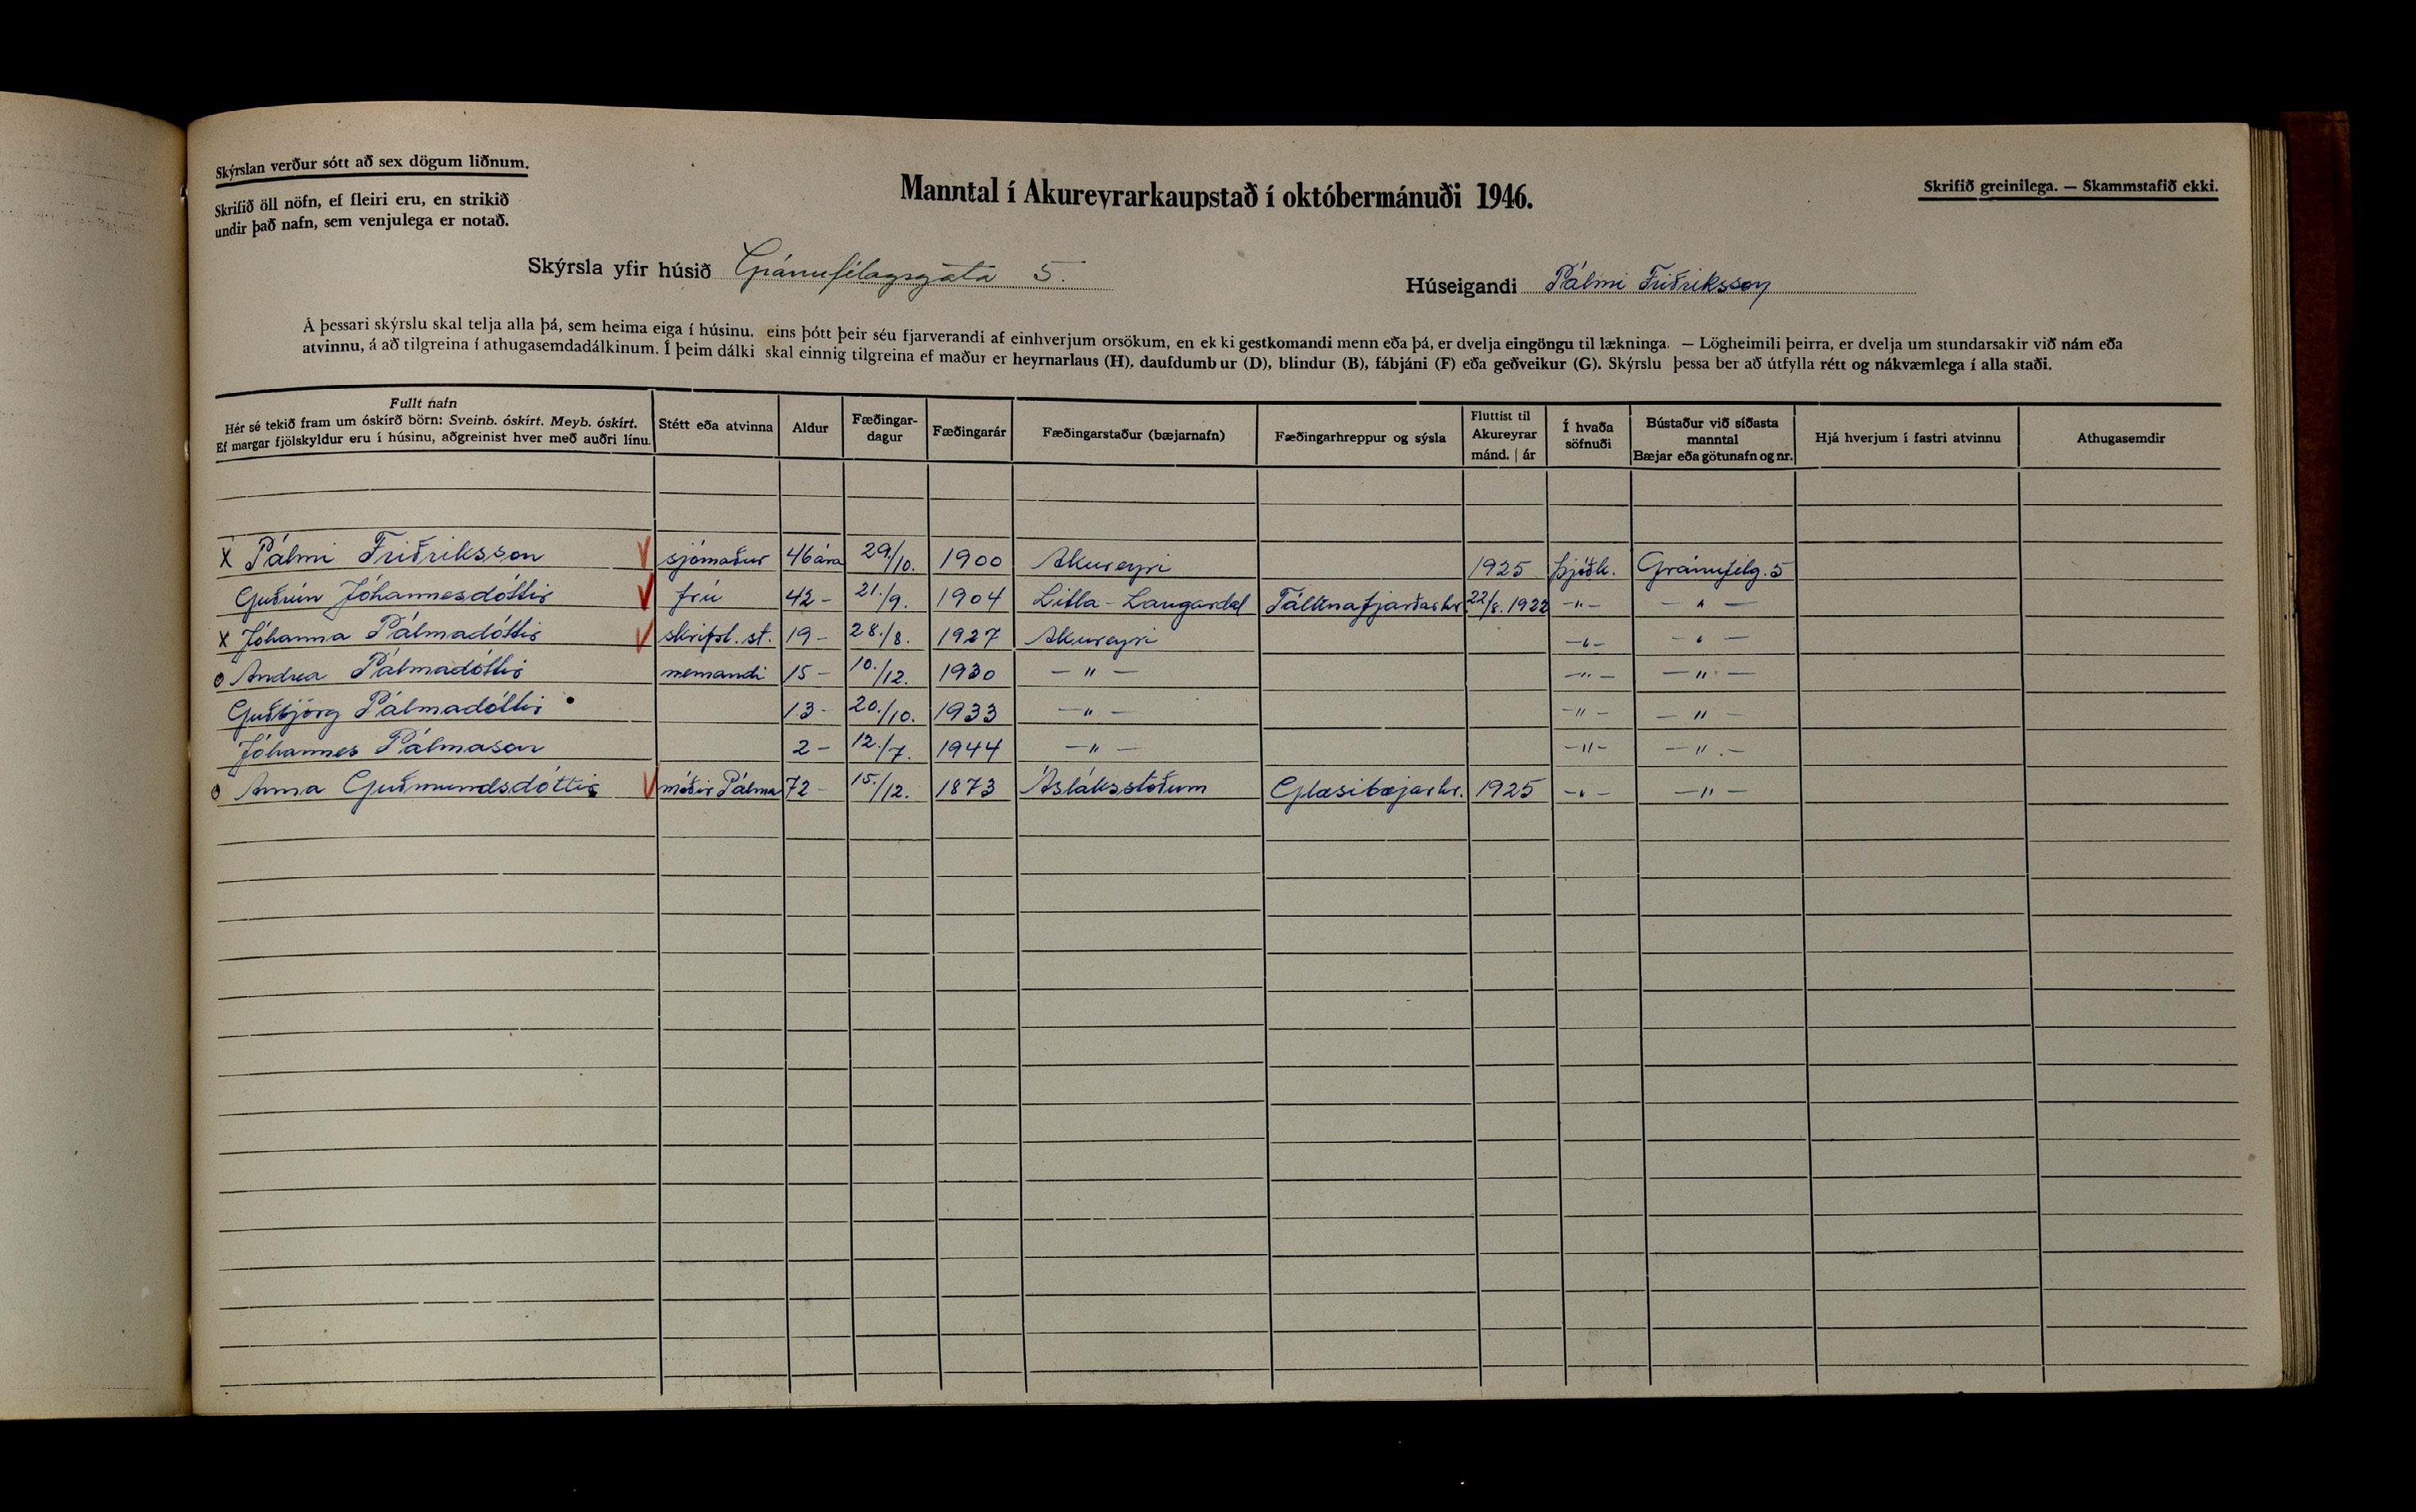 Skýrslan verður sótt að sex dögum liðnum.
Skrifið öll nöfn, ef fleiri eru, en strikið
undir það nafn, sem venjulega er notað.
Manntal í Akureyrarkaupstað í októbermánuði 1946.
Skrifið greinilega. — Skammstafið ekki.
Skýrsla yfir húsið Gránufélagsgata 5.
Húseigandi Pálmi Friðriksson
Á þessari skýrslu skal telja alla þá, sem heima eiga í húsinu, eins þótt þeir séu fjarverandi af einhverjum orsökum, en ekki gestkomandi menn eða þá, er dvelja eingöngu til lækninga. — Lögheimili þeirra, er dvelja um stundarsakir við nám eða
atvinnu, á að tilgreina í athugasemdadálkinum. Í þeim dálki skal einnig tilgreina ef maður er heyrnarlaus (H), daufdumbur (D), blindur (B), fábjáni (F) eða geðveikur (G). Skýrslu þessa ber að útfylla rétt og nákvæmlega í alla staði.
Fullt nafn
Hér sé tekið fram um óskírð börn: Sveinb. óskírt. Meyb. óskírt.
Ef margar fjölskyldur eru í húsinu, aðgreinist hver með auðri línu.
Stétt eða atvinna
Aldur
Fæðingar-
dagur
Fæðingarár
Fæðingarstaður (bæjarnafn)
Fæðingarhreppur og sýsla
Fluttist til
Akureyrar
mánd. | ár
Í hvaða
söfnuði
Bústaður við síðasta
manntal
Bæjar eða götunafn og nr.
Hjá hverjum í fastri atvinnu
Athugasemdir
x Pálmi Friðriksson V sjómaður 46 ára 29./10. 1900 Akureyri 1925 þjóðk. Gránufélg. 5
Guðrún Jóhannesdóttir V frú 42 - 21./9. 1904 Litla-Laugardal Tálknafjarðarhr. 22/8. 1922 -"- - " -
x Jóhanna Pálmadóttir V skrifst. st. 19 - 28./8. 1927 Akureyri -"- - " -
o Andrea Pálmadóttir nemandi 15 - 10./12. 1930 - " - -"- - " -
Guðbjörg Pálmadóttir 13 - 20./10. 1933 - " - -"- - " -
Jóhannes Pálmason 2 - 12./7. 1944 - " - -"- - " -
o Anna Guðmundsdóttir V móðir Pálma 72 - 15./12. 1873 Ásláksstöðum Glæsibæjarhr. 1925 -"- - " -